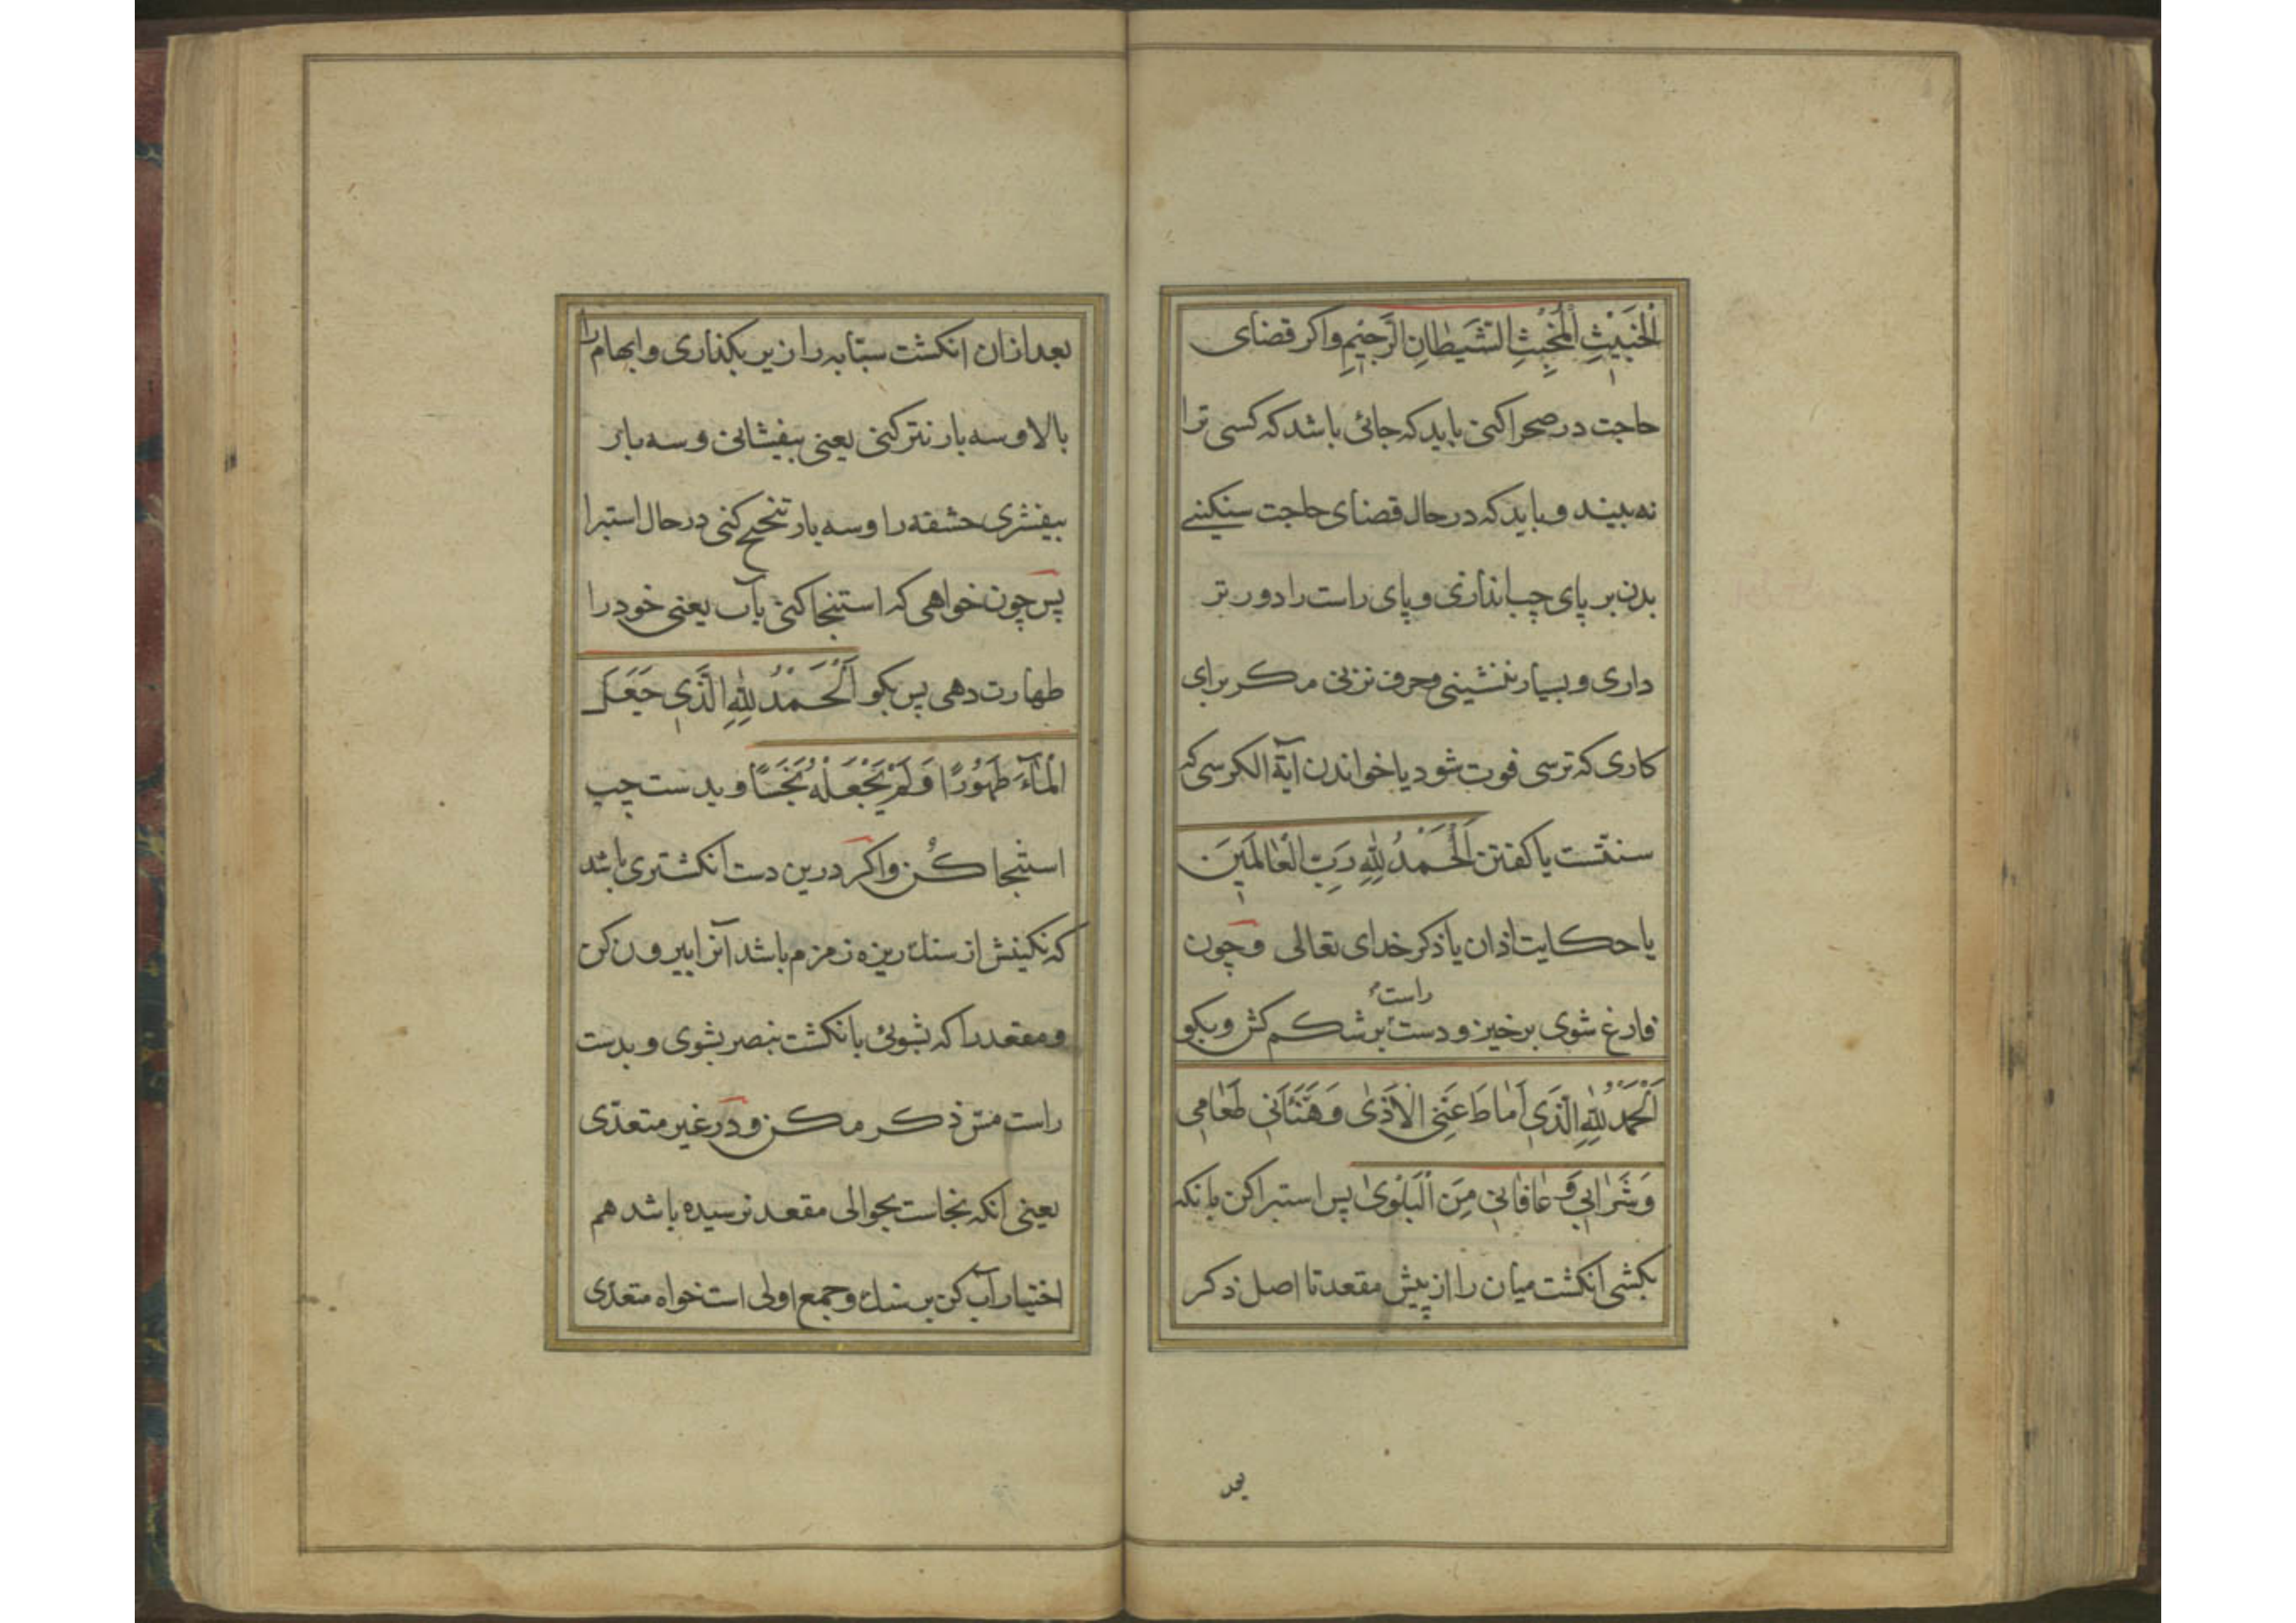 الْخَبِيْثِ الْمُخْبِثِ الشَّيْطَانِ الرَّجِيْمِ واكر قضاى
حاجت در صحرا كنى بايد كه جائى باشد كه كسى ترا
نه بيند و بايد كه در حال قضاى حاجت سنكينے
بدن بر پاى چپ اندازى و پاى راست را دور تر
دارى و بسيار ننشينى و حرف نزنى مكر براى
كارى كه ترسى فوت شود يا خواندن آية الكرسى كه
سنتست يا كفتن اَلْحَمْدُ لِلّٰهِ رَبِّ الْعَالَمِيْنَ
يا حكايت اذان يا ذكر خداى تعالى و چون
راست
فارغ شوى برخيز و دست بر شكم كش و بكو
اَلْحَمْدُ لِلّٰهِ الَّذِي اَمَاطَ عَنِّي الْاَذٰى وَ هَنَّأَنِي طَعَامِي
وَ شَرَابِي وَ عَافَانِي مِنَ الْبَلْوٰى پس استبرا كن بانكه
بكشى انكشت ميان را از پيش مقعد تا اصل ذكر
بعد
بعد ازان انكشت سبّابه را زير بكذارى و ابهام را
بالا و سه بار نتر كنى يعنى بيفشانى و سه بار
بيفشرى حشفه را و سه بار تنحنح كنى در حال استبرا
پس چون خواهى كه استنجا كنى بآب يعنى خود را
طهارت دهى پس بكو اَلْحَمْدُ لِلّٰهِ الَّذِي جَعَلَ
الْمَآءَ طَهُوْرًا وَ لَمْ يَجْعَلْهُ نَجَسًا و بدست چپ
استنجا كُن و اكر درين دست انكشترى باشد
كه نكينش از سنك ريزه زمزم باشد آنرا بيرون كن
و مقعد را كه بشوئى بانكشت بنصر بشوى و بدست
راست مسّ ذكر مكن و در غير متعدّى
يعنى آنكه نجاست بحوالى مقعد نرسيده باشد هم
اختيار آب كن بر سنك و جمع اولى است خواه متعدّى